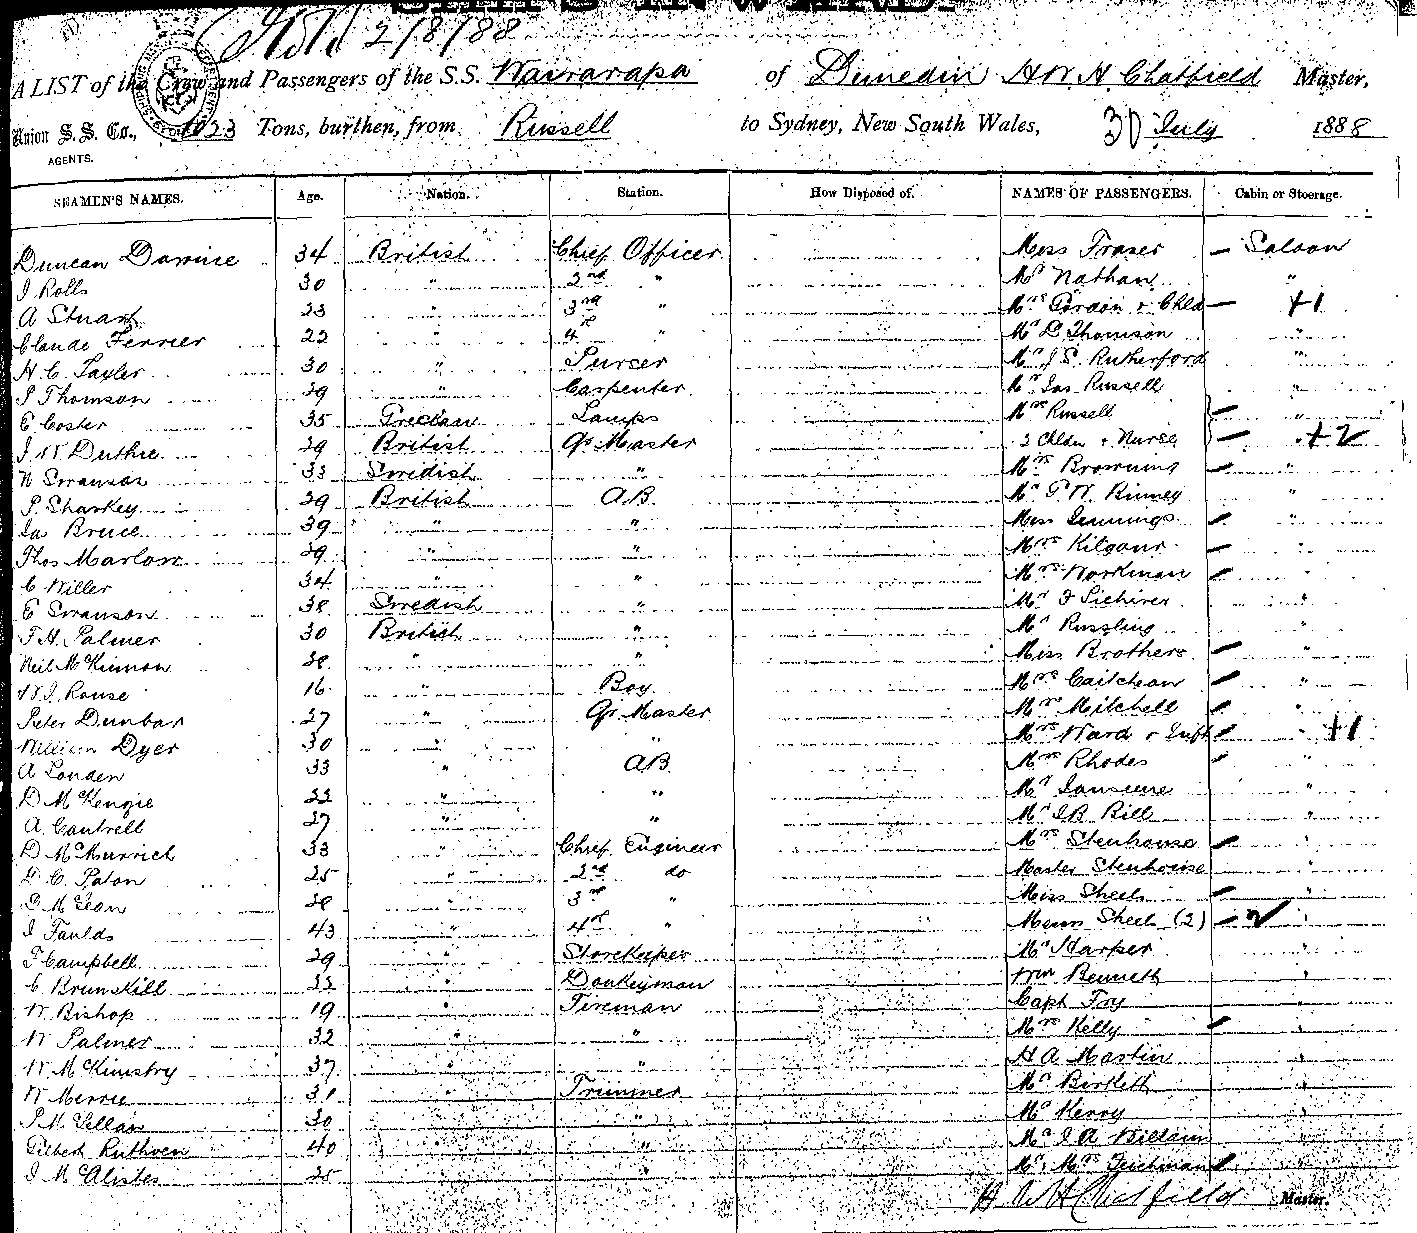 SHIPS INWARD.
2/8/88
A LIST of the Crew and Passengers of the S.S. Wairarapa of Dunedin H W H Chatfield Master,
Union S. S. Co., 1023 Tons, burthen, from Russell to Sydney, New South Wales, 30 July 1888
AGENTS.
SEAMEN'S NAMES. Age. Nation. Station. How Disposed of. NAMES OF PASSENGERS. Cabin or Steerage.
Duncan 34 British Chief Officer Miss Fraser — Saloon
J Rolls 30 " 2nd " Mr Nathan "
A Stuart 23 " 3rd " Mrs Gordon & Chld — +1
Claude Ferrier 22 " 4th " Mr D Thomson "
H. C. Tayler 30 " Purser Mr J S. Rutherford "
J Thomson 29 " Carpenter Mr Jas Russell "
E Coster 35 Grecian Lamps Mrs Russell — "
J W Duthie 29 British Qr Master 2 Chldn & Nurse — " +2
N Swanson 33 Swedish " Mrs Browning — "
P. Sharkey 29 British AB Mr G W. Binney "
Jas Bruce 39 " " Miss Jennings — "
Thos Marlow 29 " " Mrs Kilgour — "
C Willer 34 " " Mrs Workman — "
E Swanson 38 Swedish " Mr F "
F H. Palmer 30 British " Mr Russling "
Neil McKinnon 38 " " Miss Brothers — "
W. J. Rouse 16 " Boy Mrs Caitcheon — "
Peter Dunbar 27 " Qr Master Mrs Mitchell — "
William Dyer 30 " " Mrs Ward & Inft — " +1
A Louden 33 " AB Mrs Rhodes — "
D McKenzie 22 " " Mr "
A. Cantrell 27 " " Mr J B Bill "
D McMurrich 33 " Chief Engineer Mrs Stenhouse — "
D. C. Paton 25 " 2nd do Master Stenhouse "
D McLean 28 " 3rd " Miss Sheels — "
J Faulds 43 " 4th " Sheels (2) — "
T Campbell 29 " Storekeeper Mr Harper "
C Brunskill 33 " Donkeyman Wm Bennett "
W. Bishop 19 " Fireman Capt Foy "
W Palmer 32 " " Mrs Kelly — "
W McKinstry 37 " " H A Martin "
W Merrie 31 " Trimmer Mr Birkett "
P McLellan 30 " " Mr Kerry "
Gilbert Ruthven 40 " " Mr J A "
J McAlister 25 " " Mr & Mrs Teichman "
H W H Chatfield Master.